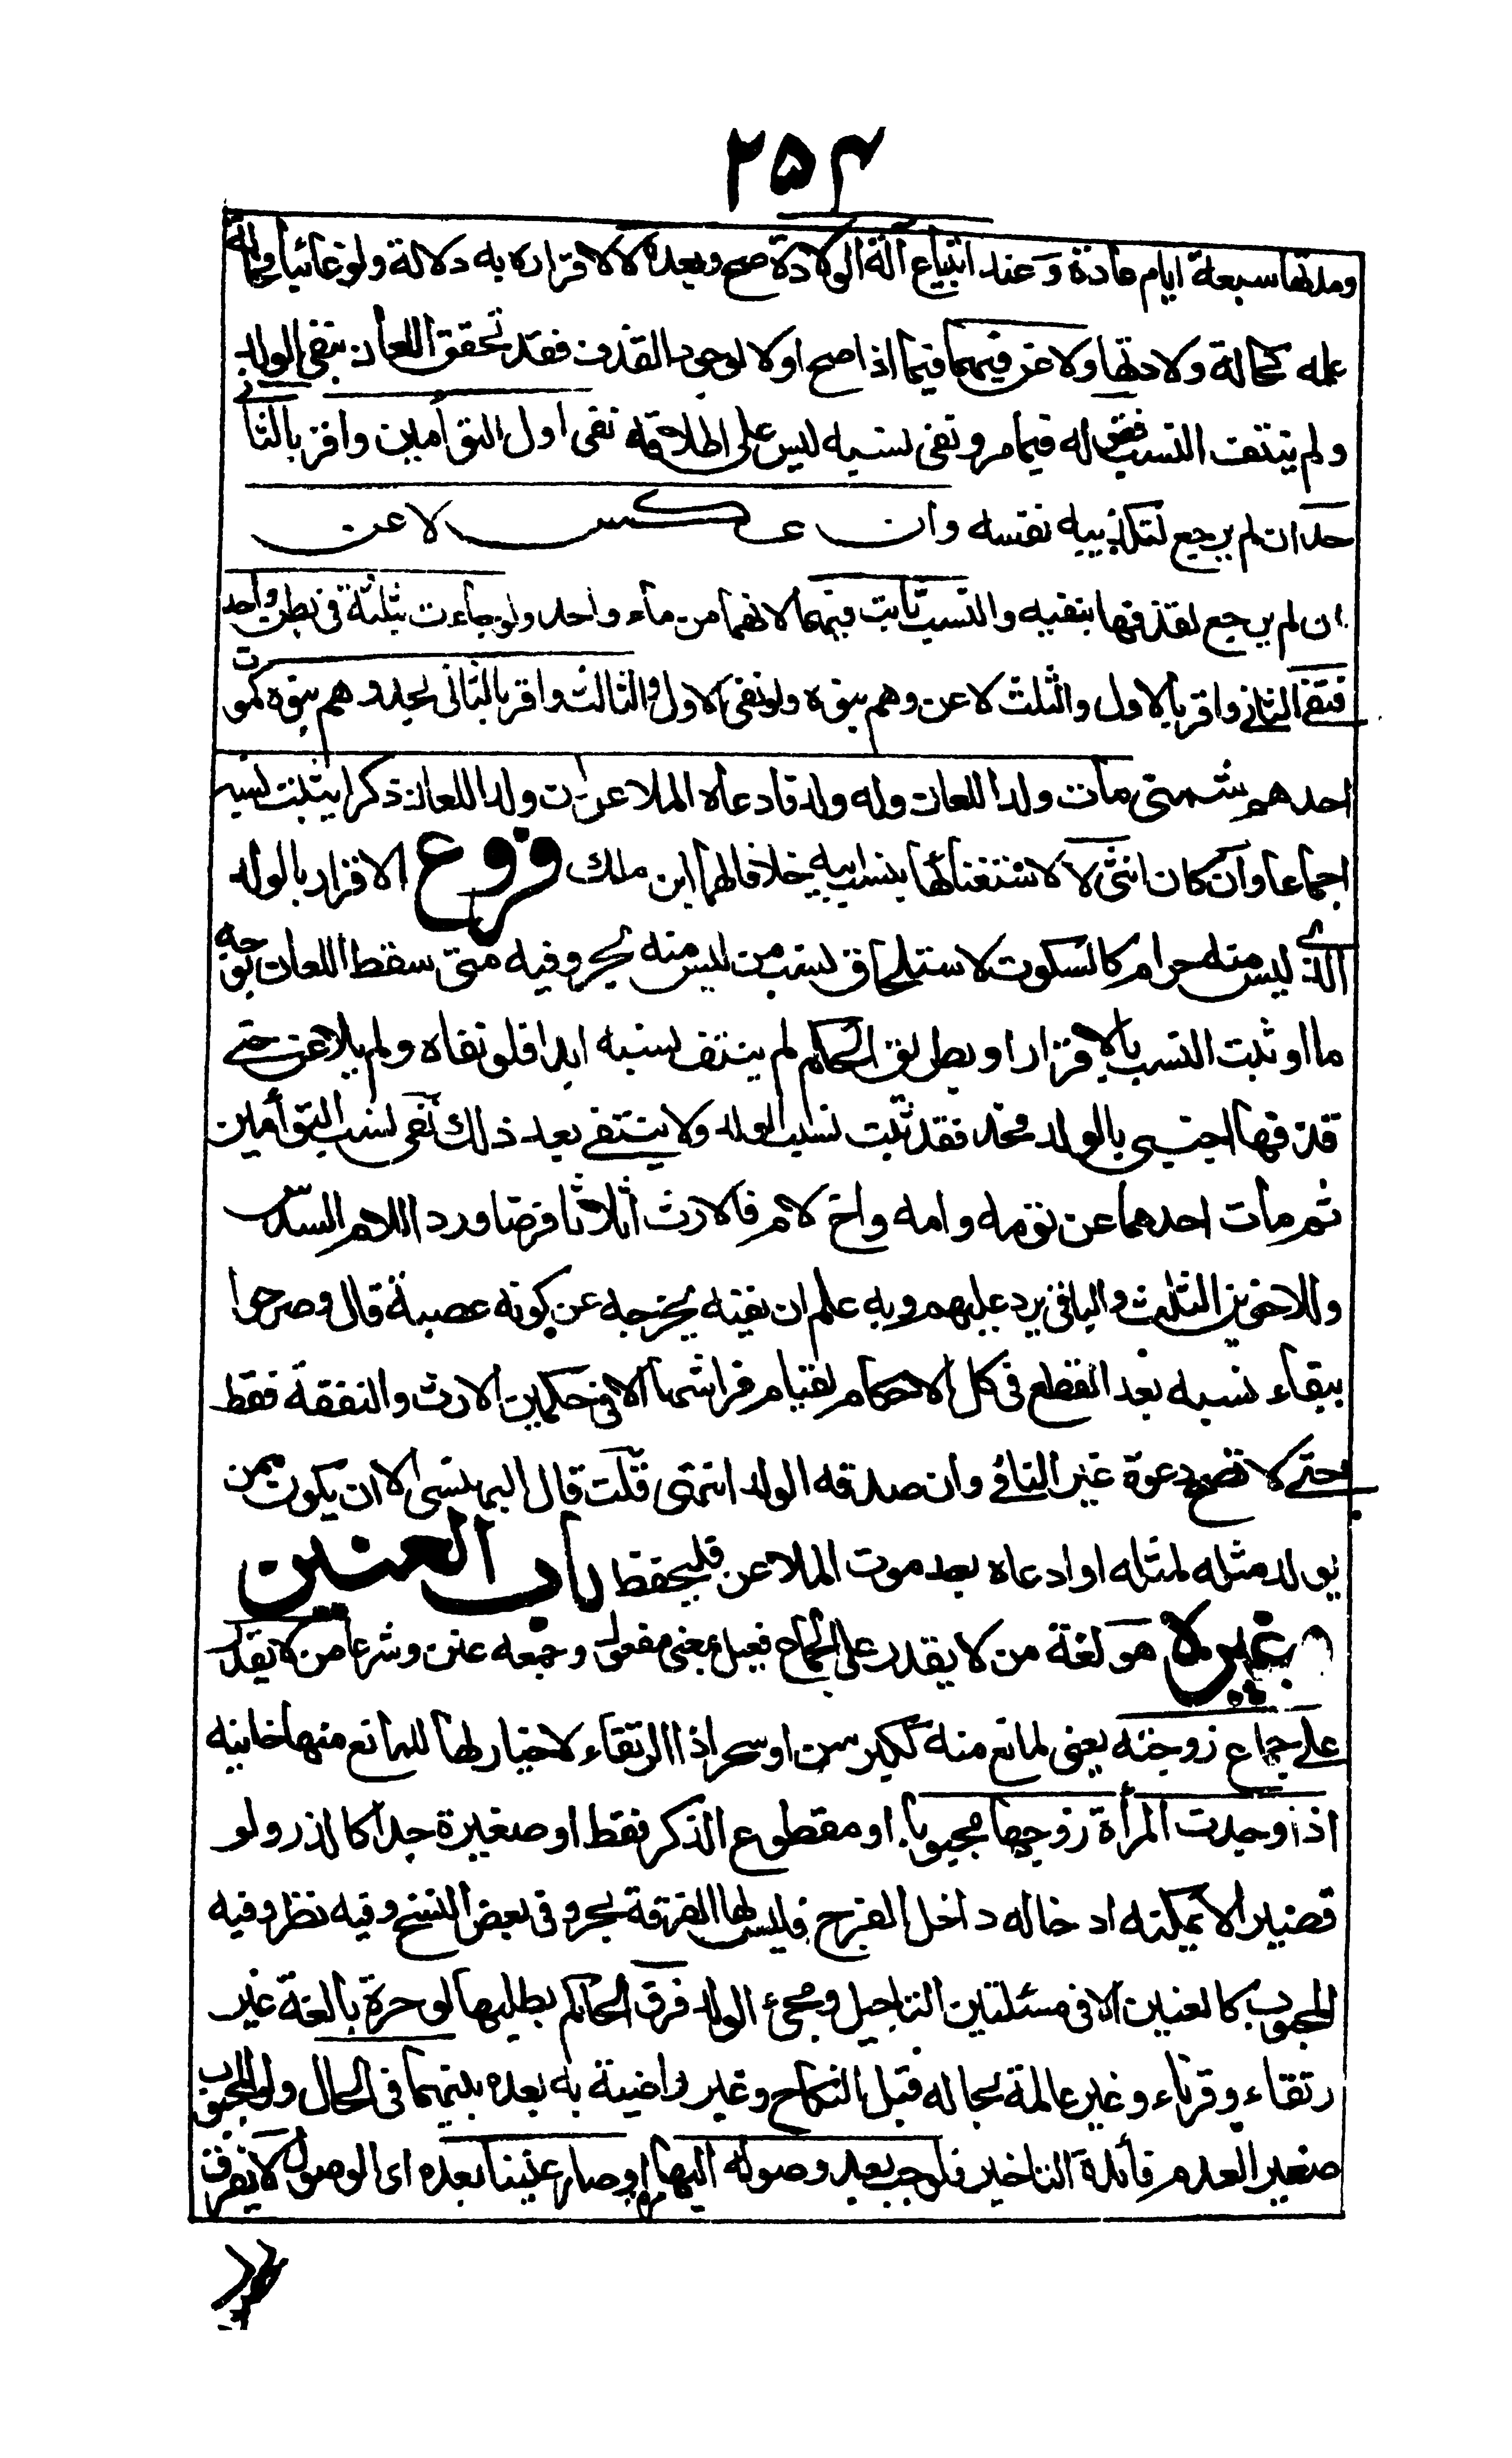 ۲۵۴
ومدتها سبعة ايام عادة وعند ابتياع آلة الولادة صح وبعده لا لاقراره به دلالة ولو غائبا فحالة
علمه كحالة ولادتها ولاعن فيهما فيما اذا صح اولا لوجود القذف فقد تحقق اللعان بنفي الولد
ولم ينتف النسب فقوله فيما مر ونفى نسبه ليس على اطلاقه نفى اول التوأمين واقر بالثاني
حد ان لم يرجع لتكذيبه نفسه وان عكس لاعن
ان لم يرجع لقذفها بنفيه والنسب ثابت فيهما لانهما من ماء واحد ولو جاءت بثلثة في بطن واحد
فنفى الثاني واقر بالاول والثلث لاعن وهم بنوه ولو نفى الاول والثالث واقر بالثاني يحد وهم بنوه كموت
احدهم شمني مات ولد اللعان وله ولد فادعاه الملاعن ان ولد اللعان ذكرا يثبت نسبه
اجماعا وان كان انثى لا لاستغنائها بنسب ابيه خلافا لهما ابن ملك فروع الاقرار بالولد
الذي ليس منه حرام كالسكوت لاستلحاق نسب من ليس منه بحر وفيه متى سقط اللعان بوجه
ما او ثبت النسب بالاقرار او بطريق الحكم لم ينتف نسبه ابدا فلو نفاه ولم يلاعن حتى
قذفها اجنبي بالولد فحد فقد ثبت نسب الولد ولا ينتفي بعد ذلك نفى نسب التوأمين
ثم مات احدهما عن توءمه وامه واخ لام فالارث اثلاثا فرضا وردا للام السدس
وللاخوين الثلث والباقي يرد عليهم وبه علم ان نفيه يخرجه عن كونه عصبة قال وصرحوا
ببقاء نسبه بعد القطع في كل الاحكام لقيام فراشها الا في حكمين الارث والنفقة فقط
حتى لا تصح دعوة غير النافي وان صدقه الولد انتهى قلت قال البهنسي الا ان يكون ممن
يولد مثله لمثله او ادعاه بعد موت الملاعن فليحفظ باب العنين
وغيره هو لغة من لا يقدر على الجماع فعيل بمعنى مفعول وجمعه عنن وشرعا من لا يقدر
على جماع زوجته يعني لمانع منه ككبر سن او سحر اذ الرتقاء لا خيار لها للمانع منها خانيه
اذا وجدت المرأة زوجها مجبوبا او مقطوع الذكر فقط او صغيرة جدا كالذر ولو
قصيرا لا يمكنه ادخاله داخل الفرج فليس لها الفرقة بحر وفي بعض النسخ وفيه نظر وفيه
المجبوب كالعنين الا في مسئلتين التاجيل ومجيء الولد فرق الحاكم بطلبها لو حرة بالغة غير
رتقاء وقرناء وغير عالمة بحاله قبل النكاح وغير راضية به بعده بينهما في الحال ولو المجبوب
صغير العدم فائدة التاخير فلو جب بعد وصوله اليها او صار عنينا بعده اى الوصول لا يفرق